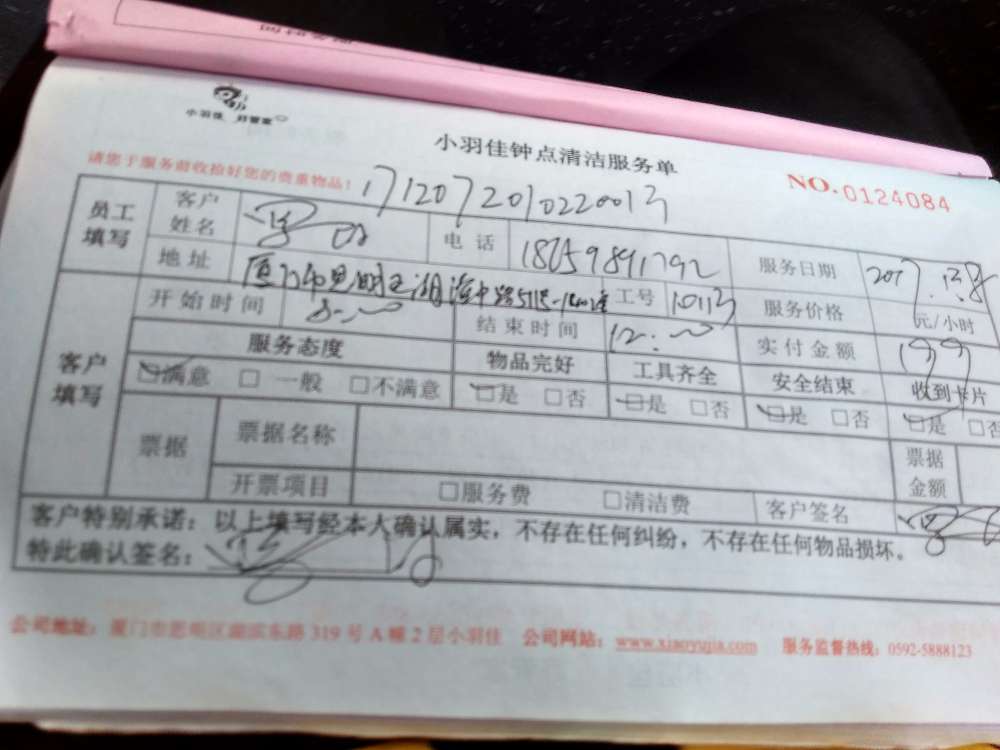 小羽佳 好管家
小羽佳钟点清洁服务单
请您于服务前收拾好您的贵重物品！
NO.0124084
1712072010220013
员工填写 客户姓名 电话 18059891792 服务日期 2017.12.8
地址 厦门市思明区湖滨中路 工号 10113 服务价格 元/小时
客户填写 开始时间 8:00 结束时间 12:00 实付金额 199
服务态度 物品完好 工具齐全 安全结束 收到卡片
□满意 □一般 □不满意 □是 □否 □是 □否 □是 □否 □是 □否
票据 票据名称 票据金额
开票项目 □服务费 □清洁费 客户签名
客户特别承诺：以上填写经本人确认属实，不存在任何纠纷，不存在任何物品损坏。
特此确认签名：
公司地址：厦门市思明区湖滨东路319号A幢2层小羽佳 公司网站：www.xiaoyujia.com 服务监督热线：0592-5888123